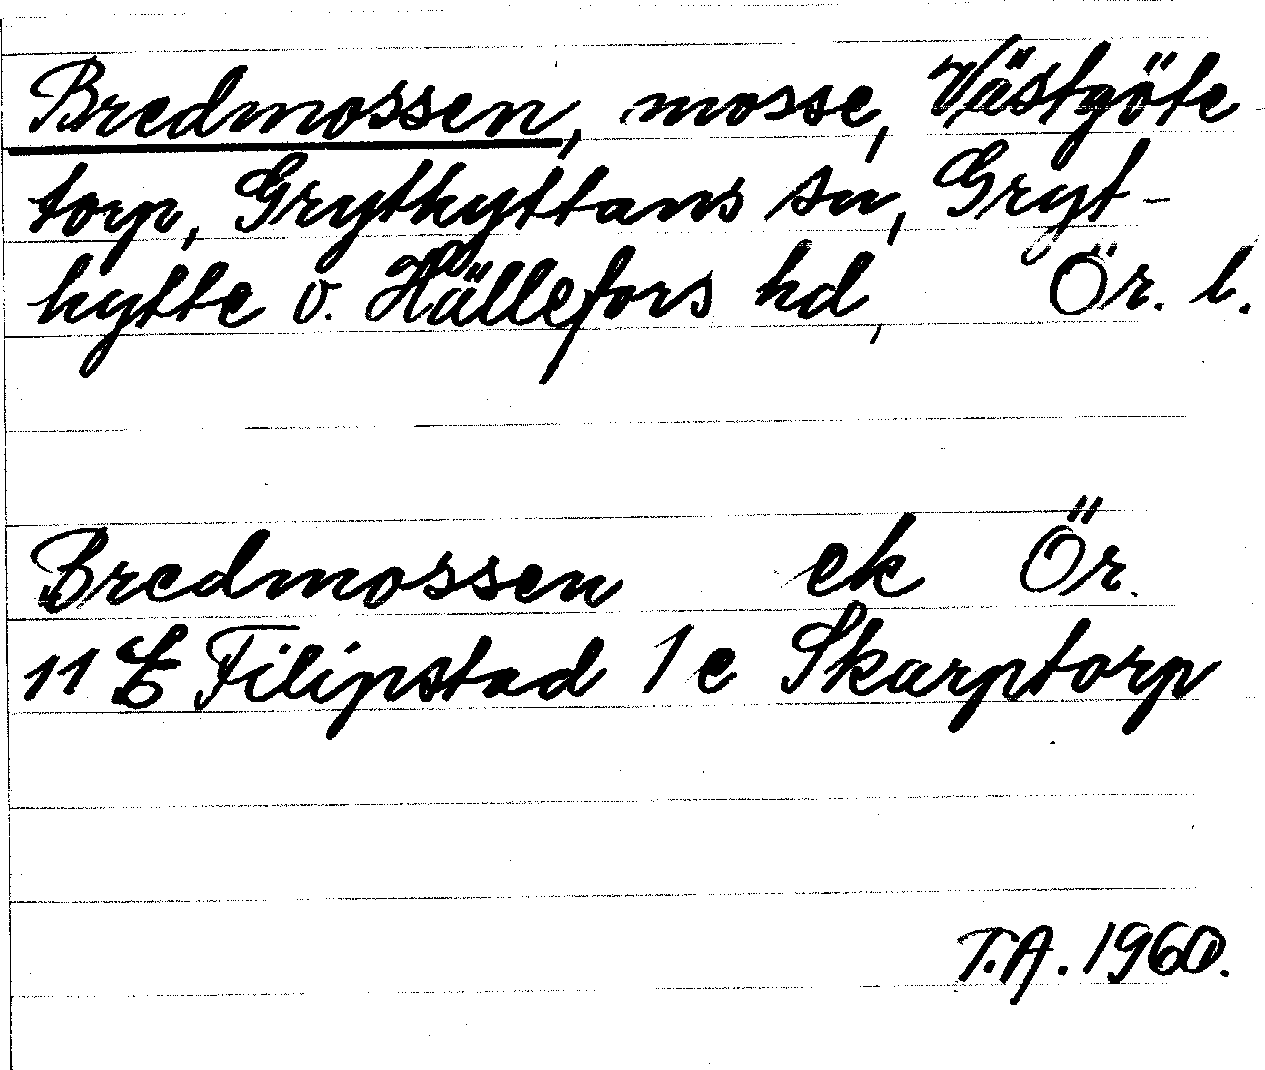 Bredmossen, mosse, Västgöte
torp, Grythyttans sn, Gryt-
hytte o. Hällefors hd, Ör. l.
Bredmossen ek Ör.
11 E Filipstad 1 e Skarptorp
T.A. 1960.